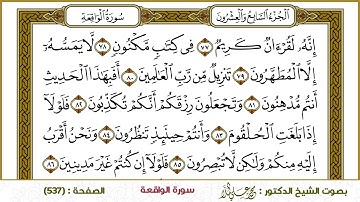 الجزء السابع والعشرون
سورة الواقعة
إِنَّهُۥ لَقُرۡءَانٞ كَرِيمٞ ٧٧ فِي كِتَٰبٖ مَّكۡنُونٖ ٧٨ لَّا يَمَسُّهُۥٓ
إِلَّا ٱلۡمُطَهَّرُونَ ٧٩ تَنزِيلٞ مِّن رَّبِّ ٱلۡعَٰلَمِينَ ٨٠ أَفَبِهَٰذَا ٱلۡحَدِيثِ
أَنتُم مُّدۡهِنُونَ ٨١ وَتَجۡعَلُونَ رِزۡقَكُمۡ أَنَّكُمۡ تُكَذِّبُونَ ٨٢ فَلَوۡلَآ
إِذَا بَلَغَتِ ٱلۡحُلۡقُومَ ٨٣ وَأَنتُمۡ حِينَئِذٖ تَنظُرُونَ ٨٤ وَنَحۡنُ أَقۡرَبُ
إِلَيۡهِ مِنكُمۡ وَلَٰكِن لَّا تُبۡصِرُونَ ٨٥ فَلَوۡلَآ إِن كُنتُمۡ غَيۡرَ مَدِينِينَ ٨٦
بصوت الشيخ الدكتور :
سورة الواقعة
الصفحة : (537)